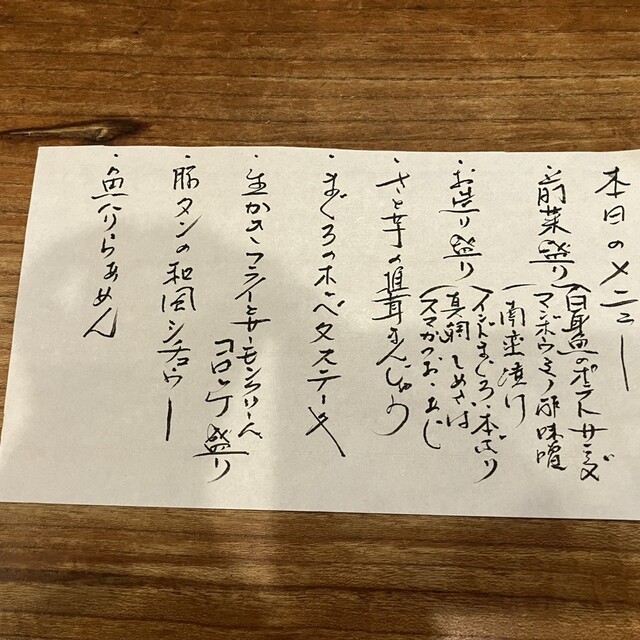 本日のメニュー
・前菜盛り(白身魚のポテトサラダ
マンボウモノ酢味噌
南蛮漬け
・お造り盛り(インドまぐろ、本ぶり
真鯛 しめさば
スマかつお、あじ
・さと芋の湯葺まんじゅう
・まぐろのホホベタステーキ
・生かきフライとサーモンクリーム
コロッケ盛り
・豚タンの和風シチュー
・魚介らぁめん